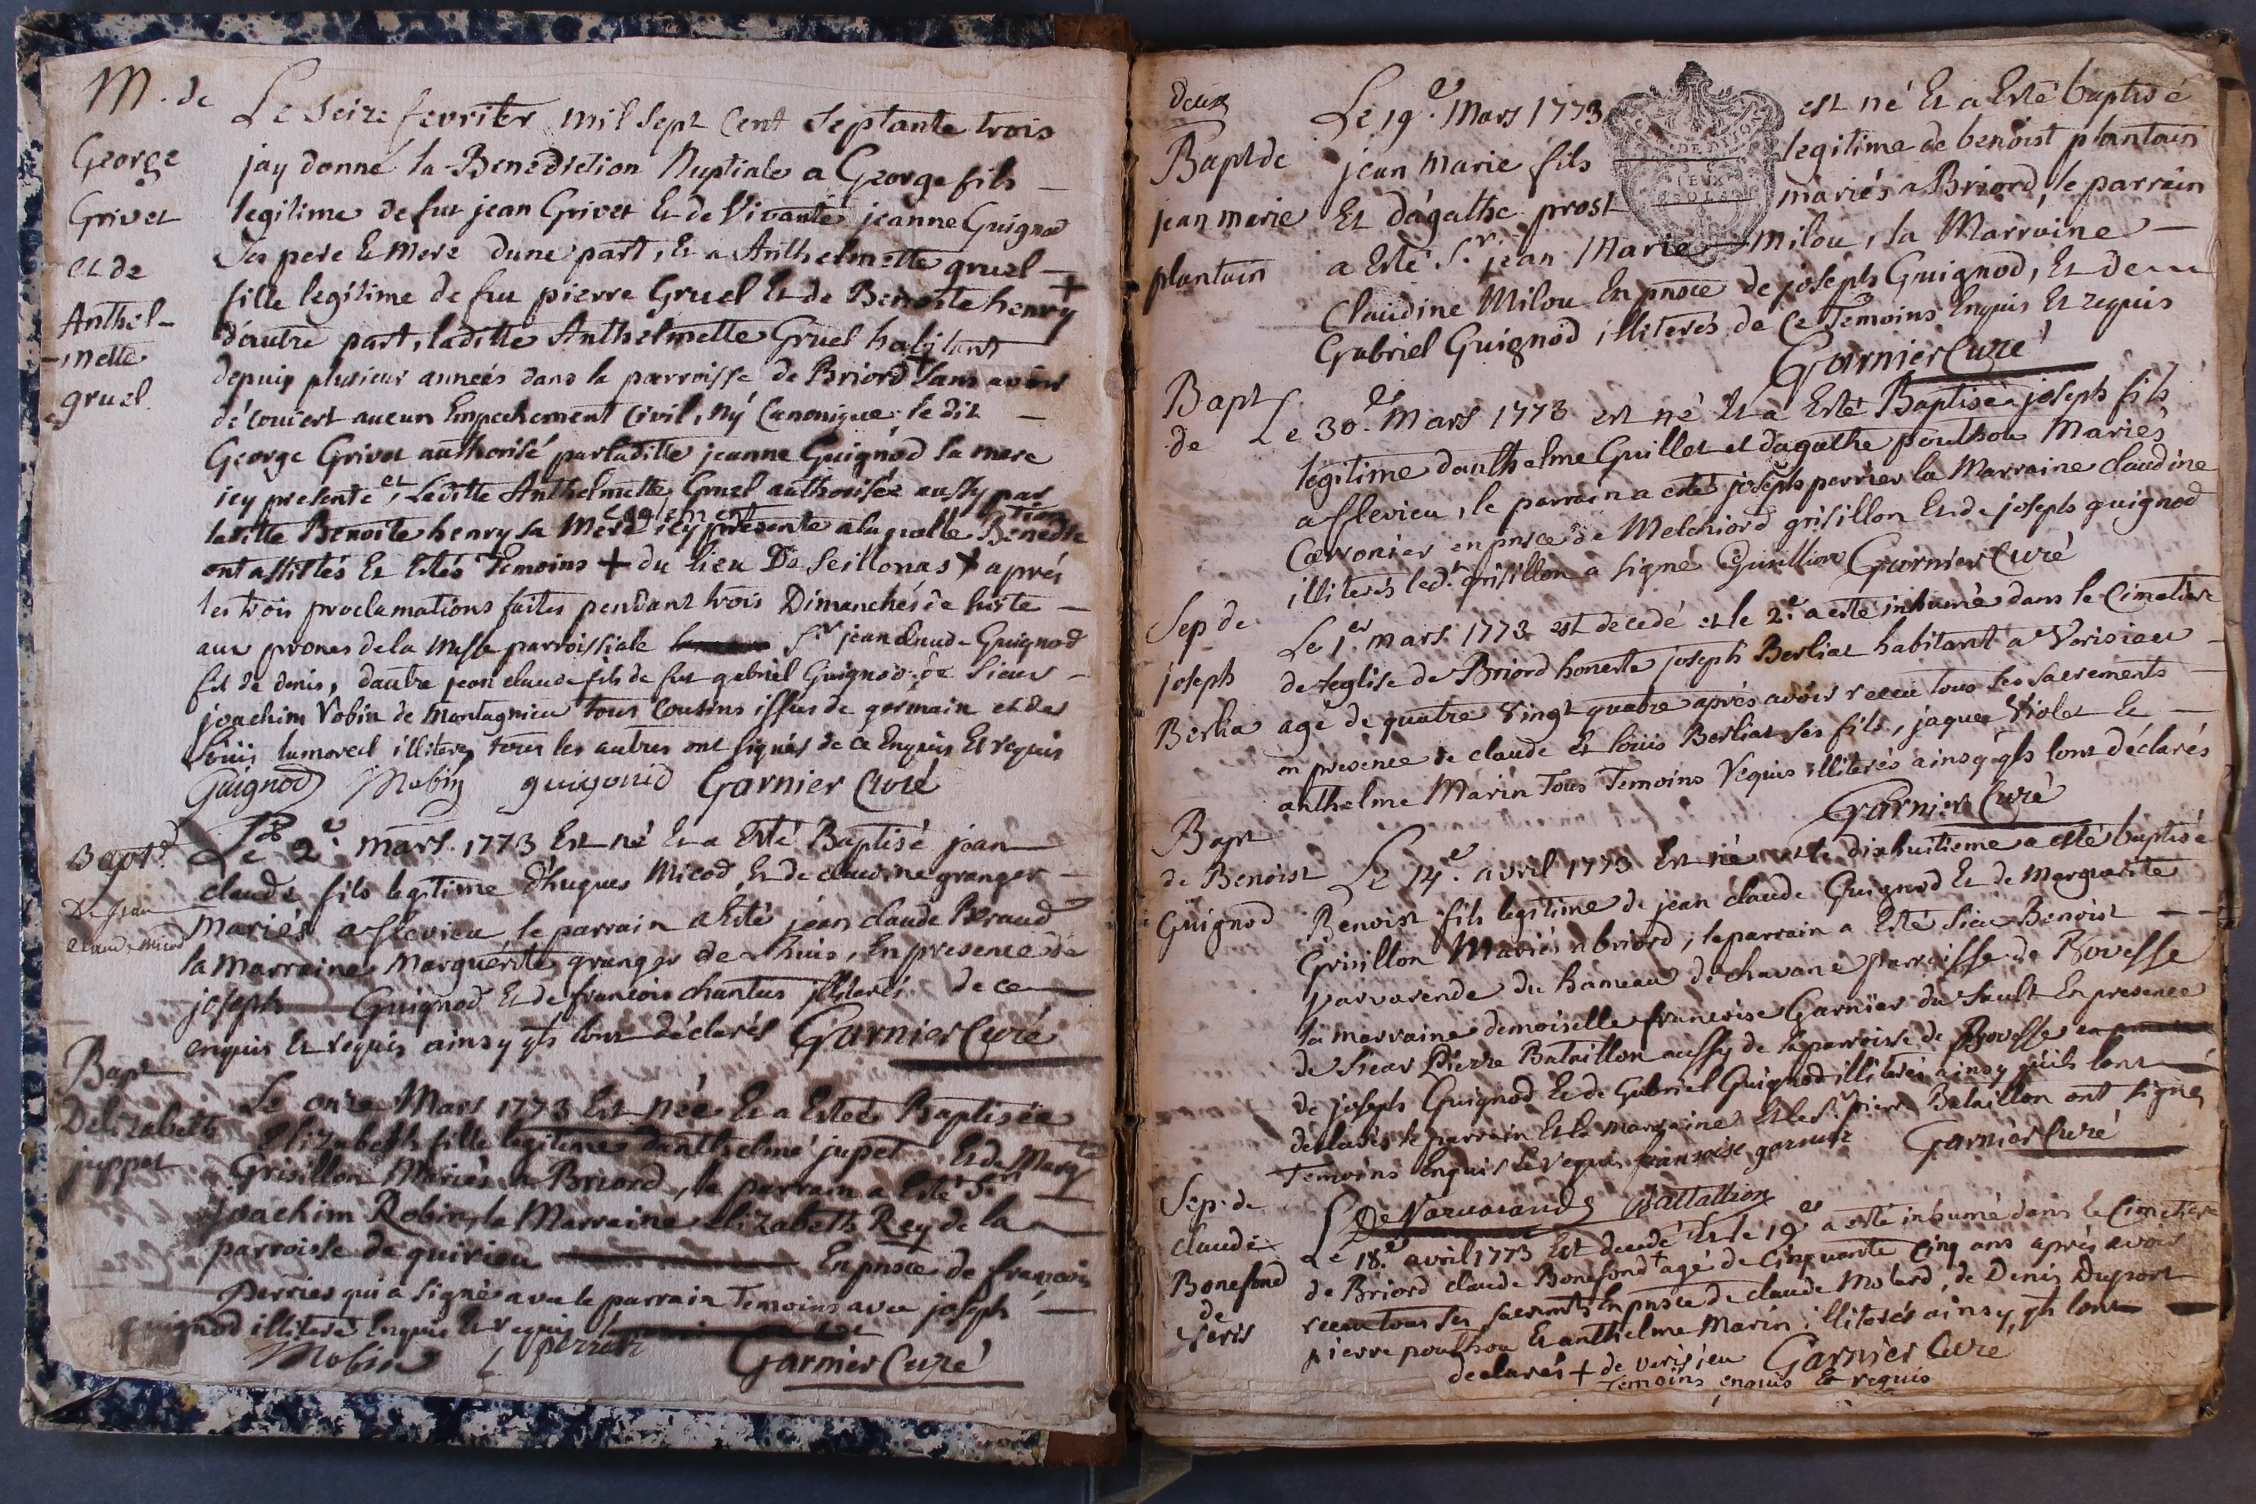 M. de
George
Grivet
et de
Anthel-
mette
gruel
Le seize fevrier mil sept cent septante trois
jay donné la Benediction Nuptiale a George fils
legitime de fut jean Grivet Et de Vivante jeanne Guignod
ses pere Et Mere dune part, Et a Anthelmette gruel
fille legitime de fut pierre Gruel Et de Benoite henry +
d'autre part, laditte Anthelmette Gruel habitant
depuis plusieur anneés dans la parroisse de Briord sans avoir
découvert aucun Empechement civil, ny Canonique; le dit
George Grivet authorisé par laditte jeanne Guignod sa mere
icy presente et, Laditte Anthelmette Gruel authorisée aussy par
laditte Benoite henry sa Mere icy presente a laquelle Benediction
ont assistés Et Estés Temoins + du lieu De Seillonas + aprés
les trois proclamations faites pendant trois Dimanchés de suite
aux prones de la Messe parroissiale Sr jean claude Guignod
fils de denis, dautre jean claude fils de fut gabriel Guignod, Sieur
joachim Robin de Montagnieu tous Cousins issus de germain et de
Loüis lumoreil illiteres tous les autres ont signés de ce Enquis Et requis
Guignod Robin guigonid Garnier Curé
Bapt.
De Jean
claude micod
Le 2e mars 1773 Est né Et a Esté Baptisé jean
claude fils legitime d'hugues Micod, Et de claudine granger
Mariés a flevieu le parrain a Esté jean claude Beraud
la Marraine Marguérite granger de Lhuis, En presence de
joseph Guignod Et de francois chantus illiterés de ce
enquis Et requis ainsy qls lont déclarés Garnier Curé
Bapt
Delizabeth
juppet
Le onze Mars 1773 Est Née Et a Esteé Baptisée
Elizabeth fille legitime danthelme jupet Et de Margte
Grisillon Mariés a Briord, le parrain a Esté Sr
joachim Robin, la Marraine Elizabeth Rey de la
parroisse de quirieu En pnsce de francois
Perrier qui a signé avec le parrain Temoins avec joseph
guignod illiteré Enquis Et requis
Robin perrier Garnier Curé
deux
Bapt de
jean marie
plantain
Le 19e Mars 1773 est né Et a Esté baptisé
jean marie fils legitime de benoist plantain
Et dágathe prost mariés a Briord, le parrain
a Esté Sr jean Marie Milou, la Marraine
Claudine Milou En pnsce de joseph Guignod, Et de
Gabriel Guignod illiterés de Ce Temoins Enquis Et requis
Garnier Curé
Bapt
de
Le 30e Mars 1773 est né Et a Esté Baptisé joseph fils
legitime danthelme Guillet et dagathe pouthou Mariés
a flevieu, le parrain a esté joseph perrier la Marraine claudine
Carronier en pnsce de Melchiord grisillon Et de joseph guignod
illiterés led. grisillon a signé Grisillion Garnier Curé
Sep de
joseph
Berlia
Le 1er mars 1773 est decedé et le 2e a esté inhumé dans le Cimetiere
de leglise de Briord honeste joseph Berliat habitant a Verisieu
agé de quatre vingt quatre aprés avoir receu tous ses sacrements
en presence de claude Et loüis Berliat ses fils, jaques Violet Et
anthelme Marin Tous Temoins Requis illiterés ainsy qls lont déclarés
Garnier Curé
Bapt
de Benoist
Guignod
Le 14e avril 1773 Est né et le dixhuitieme a esté baptisé
Benoist fils legitime de jean claude Guignod Et de Marguerite
Grisillon Mariés a briord, le parrain a Esté Sieur Benoist
Varvarende du hameau de chavane parroisse de Bovesse
la marraine demoiselle francoise Garnier du Sault En presence
de Sieur Pierre Bataillon aussy de la parroisse de Bovesse
de joseph Guignod Et de Gabriel Guignod illiterés ainsy quils lont
declarés le parrain Et la marraine Et le Sr pierre Bataillon ont signé
Temoins Enquis Et requis francoise garnier Garnier Curé
De Varvarande Battallion
Sep. de
claude
Bonefond
de
Veris
Le 18e avril 1773 Est decedé Et le 19e a esté inhumé dans le Cimetiere
de Briord claude Bonefond + agé de Cinquante Cinq ans aprés avoir
receu tous ses sacrements En pnsce de claude Molard, de Denis Duport
pierre pouthou Et anthelme Marin illiterés ainsy qls lont
declarés + de verisieu Garnier Cure
Temoins enquis Et requis